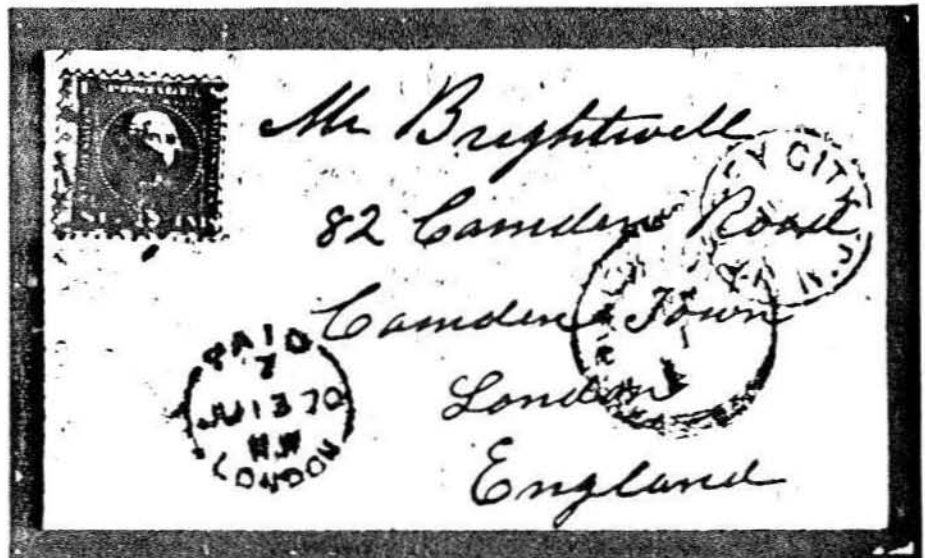 Mr Brightwell
82 Camden Road
Camden Town
London
England
PAID
7
JU 13 70
N.W
LONDON
CITY
N.J.